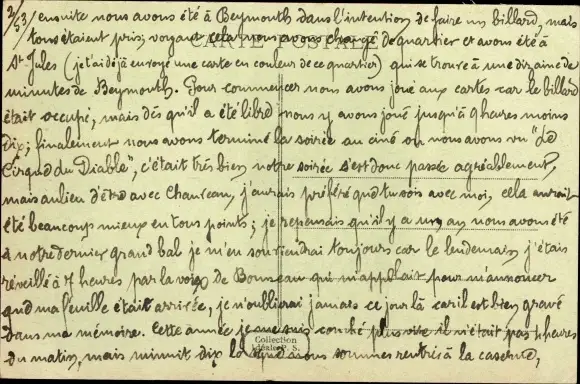 2/53/ ensuite nous avons été à Beymouth dans l'intention de faire un billard, mais
tous étaient pris; voyant cela nous avons changé de quartier et avons été à
CARTE POSTALE
St Jules (je t'ai déjà envoyé une carte en couleur de ce quartier) qui se trouve à une dizaine de
minutes de Beymouth. Pour commencer nous avons joué aux cartes car le billard
était occupé, mais dès qu'il a été libre nous y avons joué jusqu'à 9 heures moins
dix; finalement nous avons terminé la soirée au ciné où nous avons vu "Le
Cirque du Diable", c'était très bien, notre soirée s'est donc passée agréablement,
mais au lieu d'être avec Chauveau, j'aurais préféré que tu sois avec moi, cela aurait
été beaucoup mieux en tous points; je repensais qu'il y a un an, nous avons été
à notre dernier grand bal je m'en souviendrai toujours car le lendemain j'étais
réveillé à 7 heures par la voix de Bonneau qui m'appelait pour m'annoncer
que ma feuille était arrivée, je n'oublierai jamais ce jour là car il est bien gravé
dans ma mémoire. Cette année je me suis couché plus vite il n'était pas 4 heures
du matin, mais minuit dix lorsque nous sommes rentré à la caserne,
Collection
Idéale P. S.